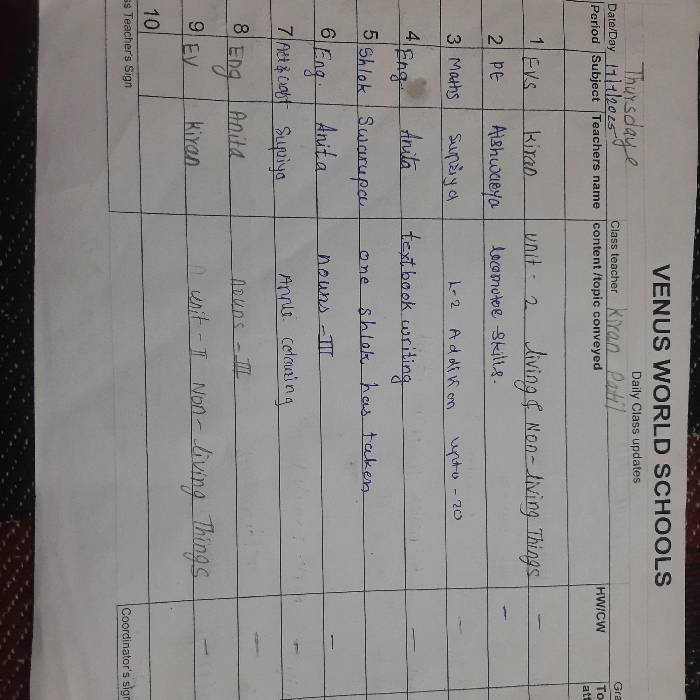 VENUS WORLD SCHOOLS
Daily Class updates
Thursdaye
Date/Day 17/7/2025 Class teacher Kiran Patil Gra
Period Subject Teachers name content /topic conveyed HW/CW To
att
1 EVS Kiran unit - 2 living & Non-living Things -
2 PE Aishwarya locomotor skills. -
3 Maths Supriya L-2 Addition upto - 20 -
4 Eng. Anita textbook writing -
5 Shlok Swarupa one shlok has taken
6 Eng. Anita nouns - III -
7 Art & caft Supriya Apple colouring -
8 Eng Anita nouns - III -
9 EV Kiran unit - II Non-living Things -
10
ss Teacher's Sign Coordinator's sign